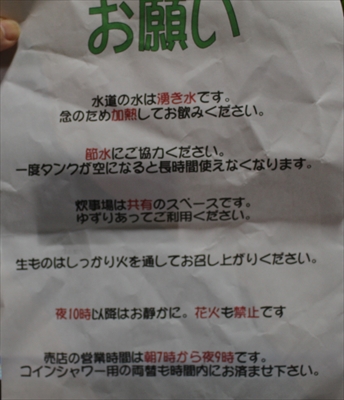 お願い
水道の水は湧き水です。
念のため加熱してお飲みください。
節水にご協力ください。
一度タンクが空になると長時間使えなくなります。
炊事場は共有のスペースです。
ゆずりあってご利用ください。
生ものはしっかり火を通してお召し上がりください。
夜10時以降はお静かに。花火も禁止です
売店の営業時間は朝7時から夜9時です。
コインシャワー用の両替も時間内にお済ませ下さい。